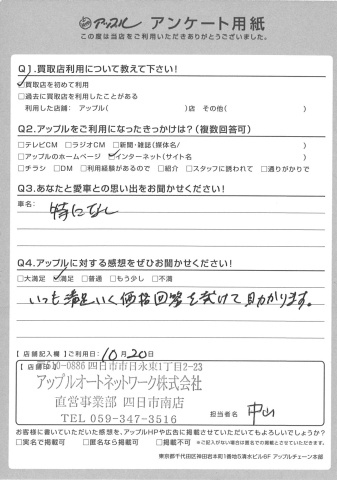 アップル アンケート用紙
この度は当店をご利用いただきありがとうございました。
Q1.買取店利用について教えて下さい!
☑買取店を初めて利用
□過去に買取店を利用したことがある
利用した店舗: アップル( )店 その他( )
Q2.アップルをご利用になったきっかけは?(複数回答可)
□テレビCM □ラジオCM □新聞・雑誌(媒体名/ )
□アップルのホームページ ☑インターネット(サイト名 )
□チラシ □DM □利用経験があるので □紹介 □スタッフに誘われて □通りがかりで
Q3.あなたと愛車との思い出をお聞かせください!
車名:
特になし
Q4.アップルに対する感想をぜひお聞かせください!
□大満足 ☑満足 □普通 □もう少し □不満
いつも満足いく価格回答を頂けて助かります。
【店舗記入欄】ご利用日: 10月20日
【店舗印】
〒510-0886 四日市市日永東1丁目2-23
アップルオートネットワーク株式会社
直営事業部 四日市南店
TEL 059-347-3516
担当者名 中山
お客様に書いていただいた感想を、アップルHPや広告に掲載させていただいてもよろしいでしょうか?
□実名で掲載可 □匿名なら掲載可 □掲載不可 ※ご記入がない場合は匿名での掲載とさせていただきます。
東京都千代田区神田岩本町1番地5清水ビル6F アップルチェーン本部